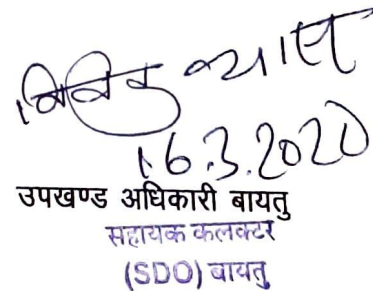 विवेक व्यास
16.3.2020
उपखण्ड अधिकारी बायतु
सहायक कलक्टर
(SDO) बायतु